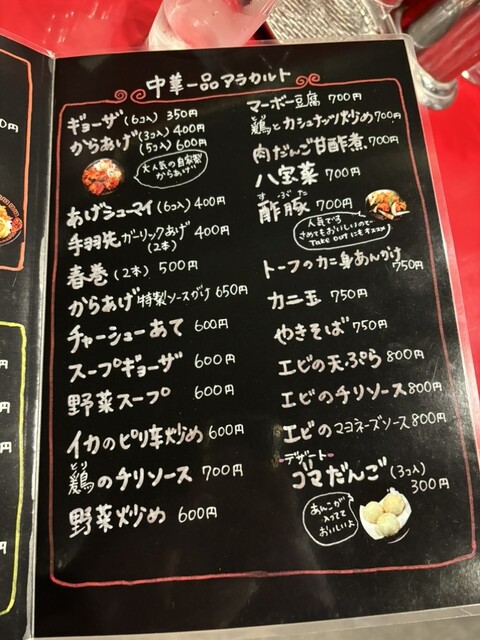 中華一品アラカルト
ギョーザ(6コ入) 350円
からあげ(3コ入) 400円
(5コ入) 600円
大人気の自家製
からあげ
あげシューマイ(6コ入) 400円
手羽先ガーリックあげ 400円
(2本)
春巻(2本) 500円
からあげ特製ソースがけ 650円
チャーシューあて 600円
スープギョーザ 600円
野菜スープ 600円
イカのピリ辛炒め 600円
とり
鶏のチリソース 700円
野菜炒め 600円
マーボー豆腐 700円
とり
鶏とカシュナッツ炒め 700円
肉だんご甘酢煮 700円
八宝菜 700円
すぶた
酢豚 700円
人気です
さめてもおいしいので
Take outにもオススメ
トーフのカニ身あんかけ
750円
カニ玉 750円
やきそば 750円
エビの天ぷら 800円
エビのチリソース 800円
エビのマヨネーズソース 800円
デザート
ゴマだんご(3コ入)
300円
あんこが
入ってて
おいしいよ